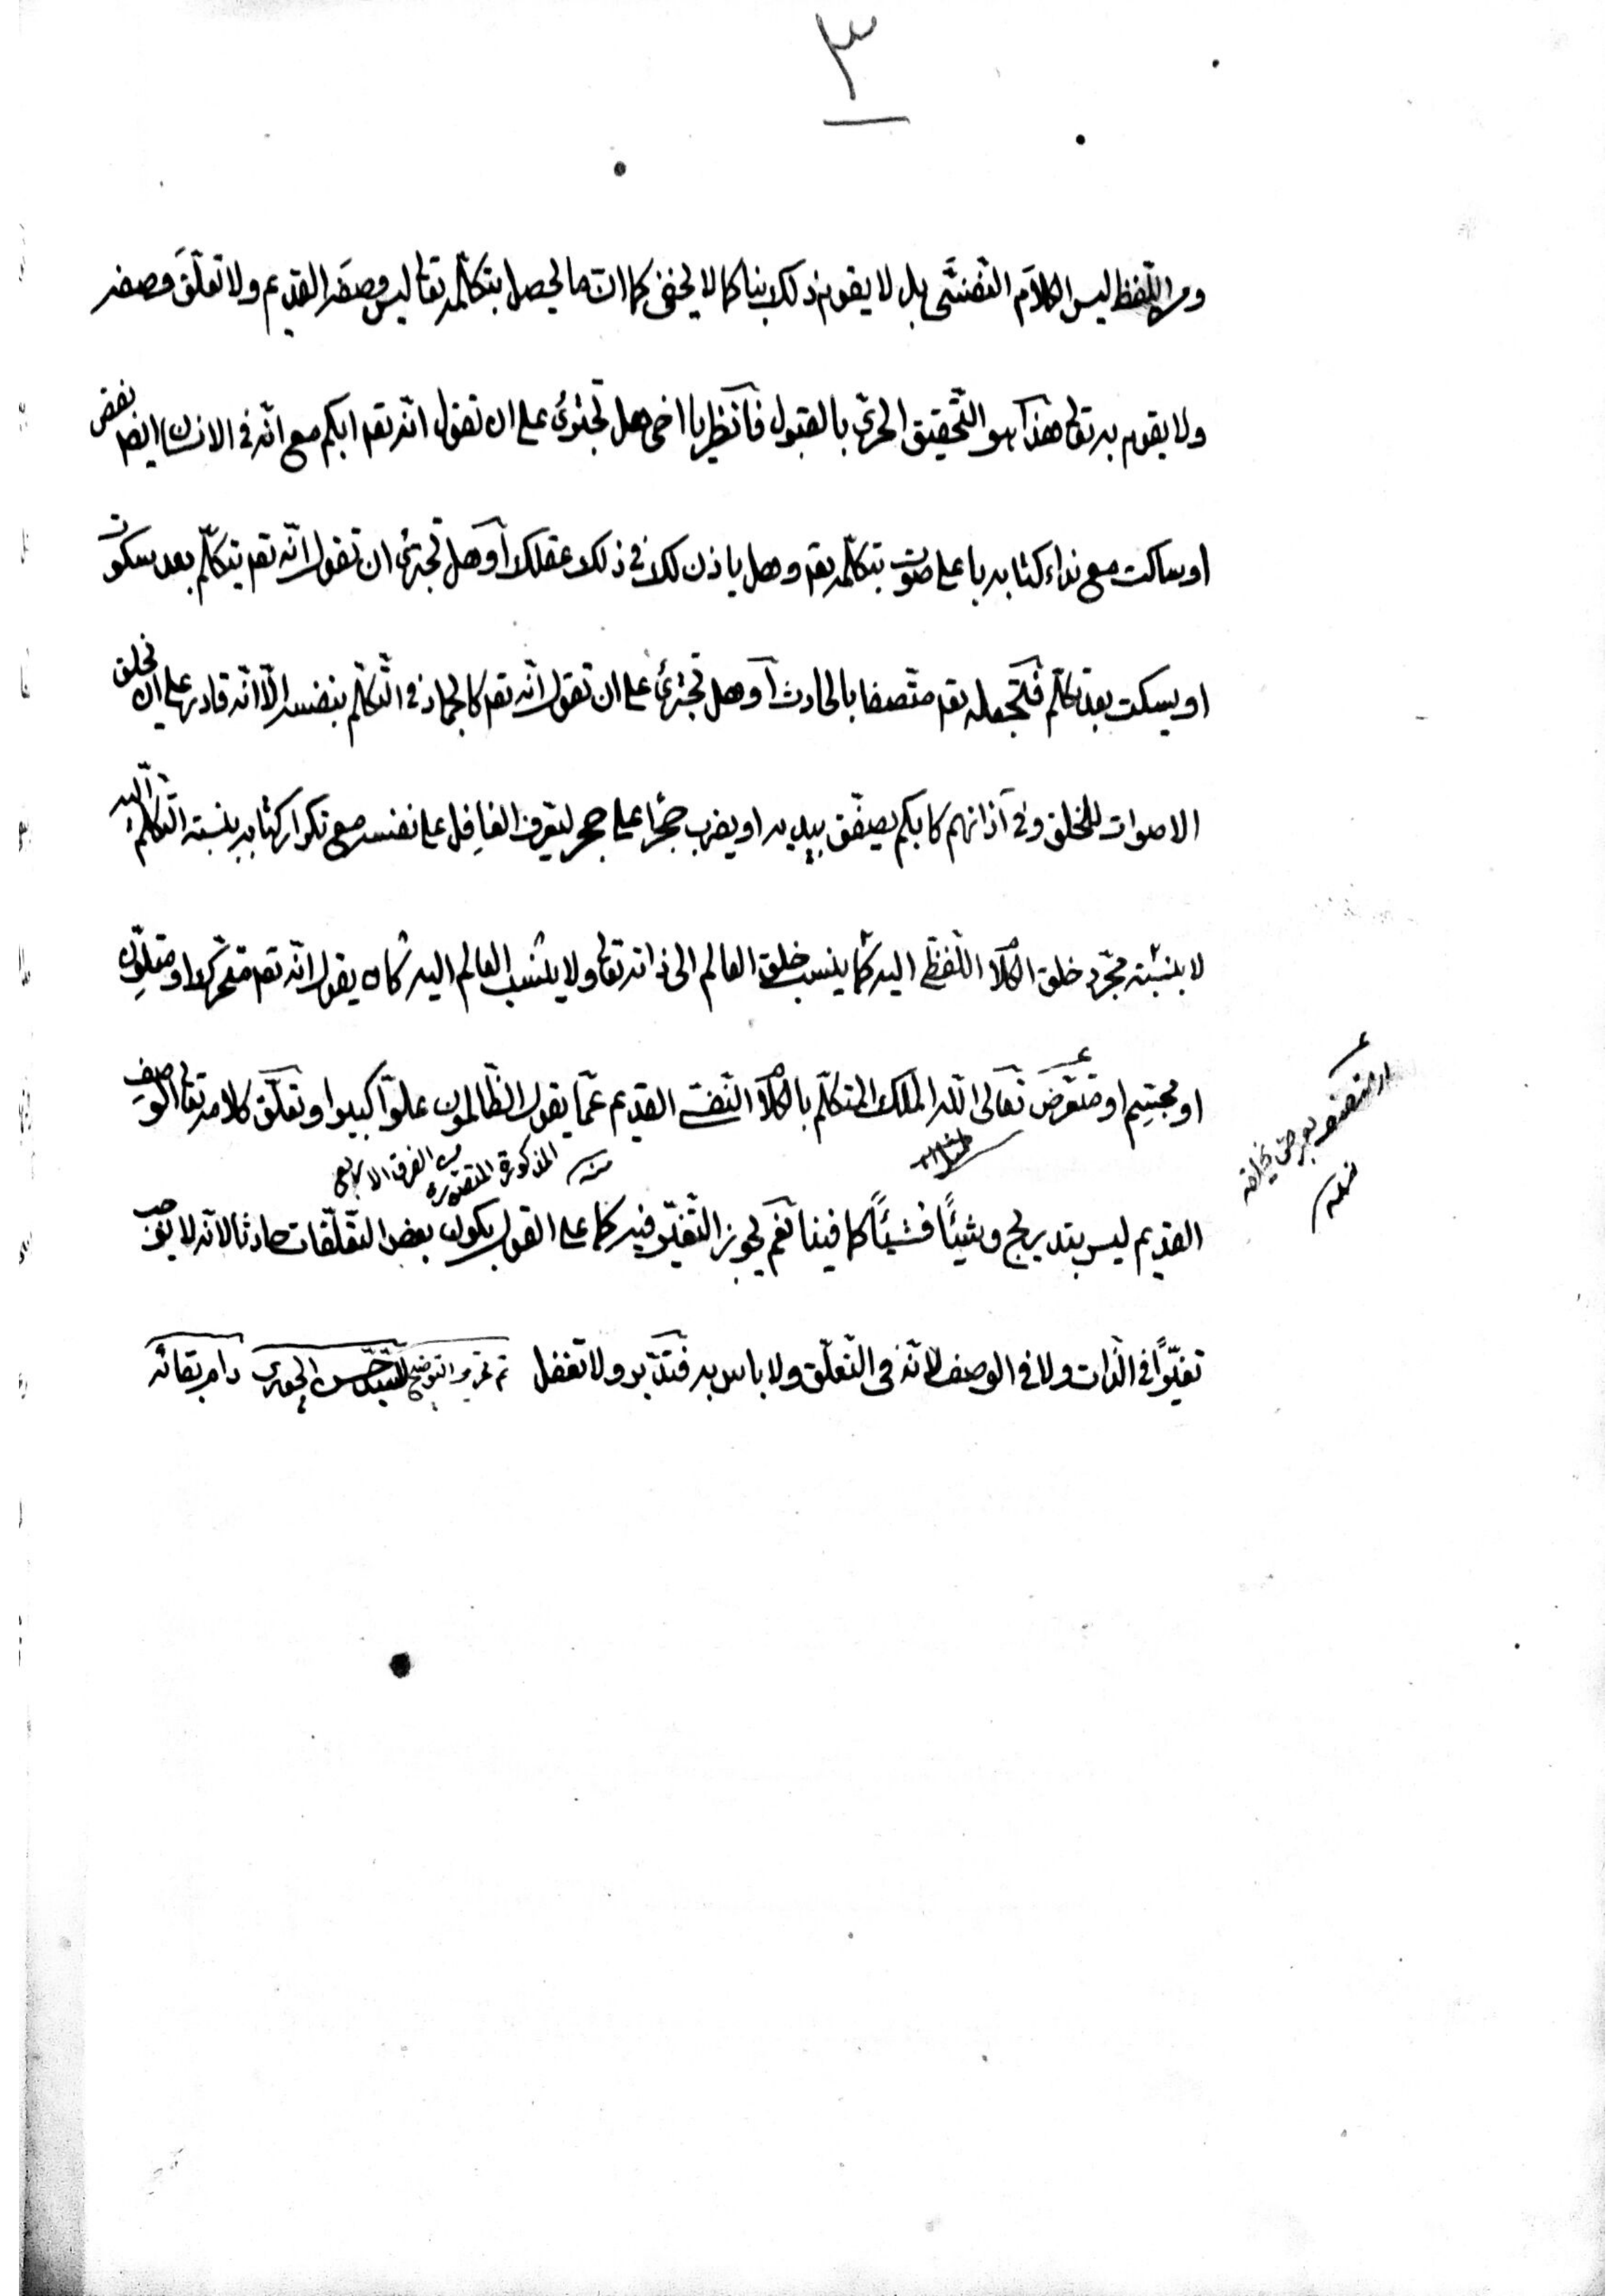 ٣
واللّفظ ليس الكلام النّفسىّ بل لا يقوم ذلك بنا كما لا يخفى كما انّ ما يحصل بتكلّمه تعالى ليس وصفه القديم ولا تعلّق وصفه
ولا يقوم به تعالى هذا هو التّحقيق الحرىّ بالقبول فانظر يا اخى هل تجترئ على ان تقول انّه تعم ابكم مع انّه فى الانسان ايضا نقص
او ساكت مع نداء كتابه باعلى صوت بتكلّمه تعم وهل ياذن لك فى ذلك عقلك أو هل تجترئ ان تقول انّه تعم يتكلّم بعد سكوت
او يسكت بعد تكلّم فتجعله تعم متّصفا بالحادث أو هل تجترئ على ان تقول انّه تعم كالجماد فى التّكلّم بنفسه الّا انّه قادر على ان يخلق
الاصوات للخلق وفى آذانهم كابكم يصفّق بيديه او يضرب حجرًا على حجر ليتعرف الغافل على نفسه مع تكرار كتابه بنسبة التّكلّم اليه
لا بنسبة مجرّد خلق الكلام اللّفظى اليه كما ينسب خلق العالم الى ذاته تعالى ولا ينسب العالم اليه كان يقول انّه تعم متحرّك او متلوّن
او مجسّم او متعرّض تعالى الله الملك المتكلّم بالكلام النّفسى القديم عمّا يقول الظّالمون علوّا كبيرا وتعلّق كلامه تعالى الوصف
منه المذكورة المتصوّرة من الفرق الاربع
القديم ليس بتدريج وشيئًا فشيئًا كما فينا نعم يجوز التّغيّر فيه كما على القول بكون بعض التّعلّقات حادثا لانّه لا يوجب
تغيّرًا فى الذّات ولا فى الوصف لانّه فى التّعلّق ولا باس به فتدبّر ولا تغفل تمّ تحرير التوضيح للسيّد حسن الجورى دام بقائه